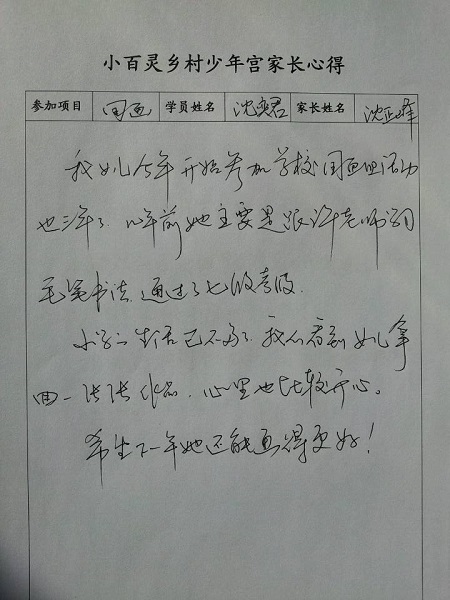 小百灵乡村少年宫家长心得
参加项目 国画 学员姓名 沈奕君 家长姓名 沈正峰
我女儿今年开始参加学校国画组活动
也三年了，以前她主要是跟许老师习
毛笔书法，通过了七级考级。
生活已不 我们看到女儿拿
回一张张作品，心里也比较开心。
希望下一年她还能画得更好！